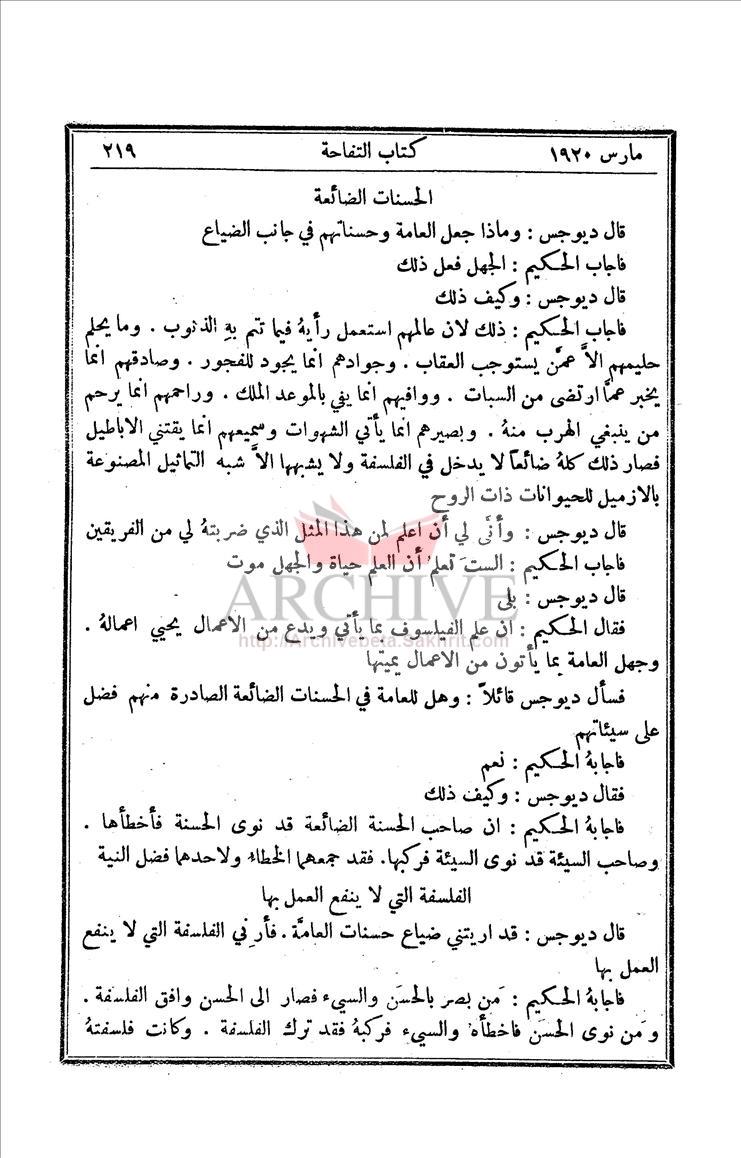 مارس ١٩٢٠ كتاب التفاحة ٢١٩
الحسنات الضائعة
قال ديوجس : وماذا جعل العامة وحسناتهم في جانب الضياع
فاجاب الحكيم : الجهل فعل ذلك
قال ديوجس : وكيف ذلك
فاجاب الحكيم : ذلك لان عالمهم استعمل رأيهُ فيما تتم بهِ الذنوب . وما يحلم
حليمهم الاَّ عمَّن يستوجب العقاب . وجوادهم انما يجود للفجور . وصادقهم انما
يخبر عماَّ ارتضى من السبات . ووافيهم انما يفي بالموعد الملك . وراحمهم انما يرحم
من ينبغي الهرب منهُ . وبصيرهم انما يأتي الشهوات وسميعهم انما يقتني الاباطيل
فصار ذلك كلهُ ضائعاً لا يدخل في الفلسفة ولا يشبهها الاَّ شبه التماثيل المصنوعة
بالازميل للحيوانات ذات الروح
قال ديوجس : وأَنَّى لي أن اعلم لمن هذا المثل الذي ضربتهُ لي من الفريقين
فاجاب الحكيم : الستَ تعلمُ أن العلم حياة والجهل موت
قال ديوجس : بلى
ARCHIVE
فقال الحكيم : ان علم الفيلسوف بما يأتي ويدع من الاعمال يحيي اعمالهُ .
http://Archivebeta.Sakhrit.com
وجهل العامة بما يأتون من الاعمال يميتها
فسأل ديوجس قائلاً : وهل للعامة في الحسنات الضائعة الصادرة منهم فضل
على سيئاتهم
فاجابهُ الحكيم : نعم
فقال ديوجس : وكيف ذلك
فاجابهُ الحكيم : ان صاحب الحسنة الضائعة قد نوى الحسنة فأخطأها .
وصاحب السيئة قد نوى السيئة فركبها. فقد جمعهما الخطاء ولاحدهما فضل النية
الفلسفة التي لا ينفع العمل بها
قال ديوجس : قد اريتني ضياع حسنات العامَّة . فأرِني الفلسفة التي لا ينفع
العمل بها
فاجابهُ الحكيم : مَن بصر بالحسَن والسيىء فصار الى الحسن وافق الفلسفة .
ومَن نوى الحسَن فاخطأه والسيىء فركبهُ فقد ترك الفلسفة . وكانت فلسفتهُ